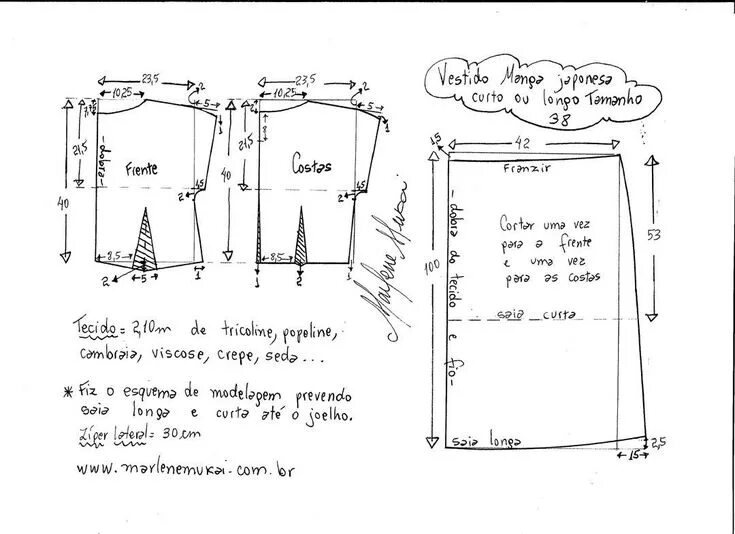 Vestido Manga japonesa
curto ou longo Tamanho
38
23,5
2
10,25
5
1
21,5
40
Frente
-dobra-
2
1,5
8,5
2
5
1
23,5
2
10,25
5
2
8
1
21,5
40
Costas
2
1,5
8,5
1
2
1
Marlene Mukai
1,5
42
Franzir
-dobra do tecido e fio-
Cortar uma vez
para a frente
e uma vez
para as costas
53
100
saia curta
saia longa
2,5
15
Tecido = 2,10m de tricoline, popeline,
cambraia, viscose, crepe, seda...
* Fiz o esquema de modelagem prevendo
saia longa e curta até o joelho.
Zíper lateral = 30cm
www.marlenemukai.com.br